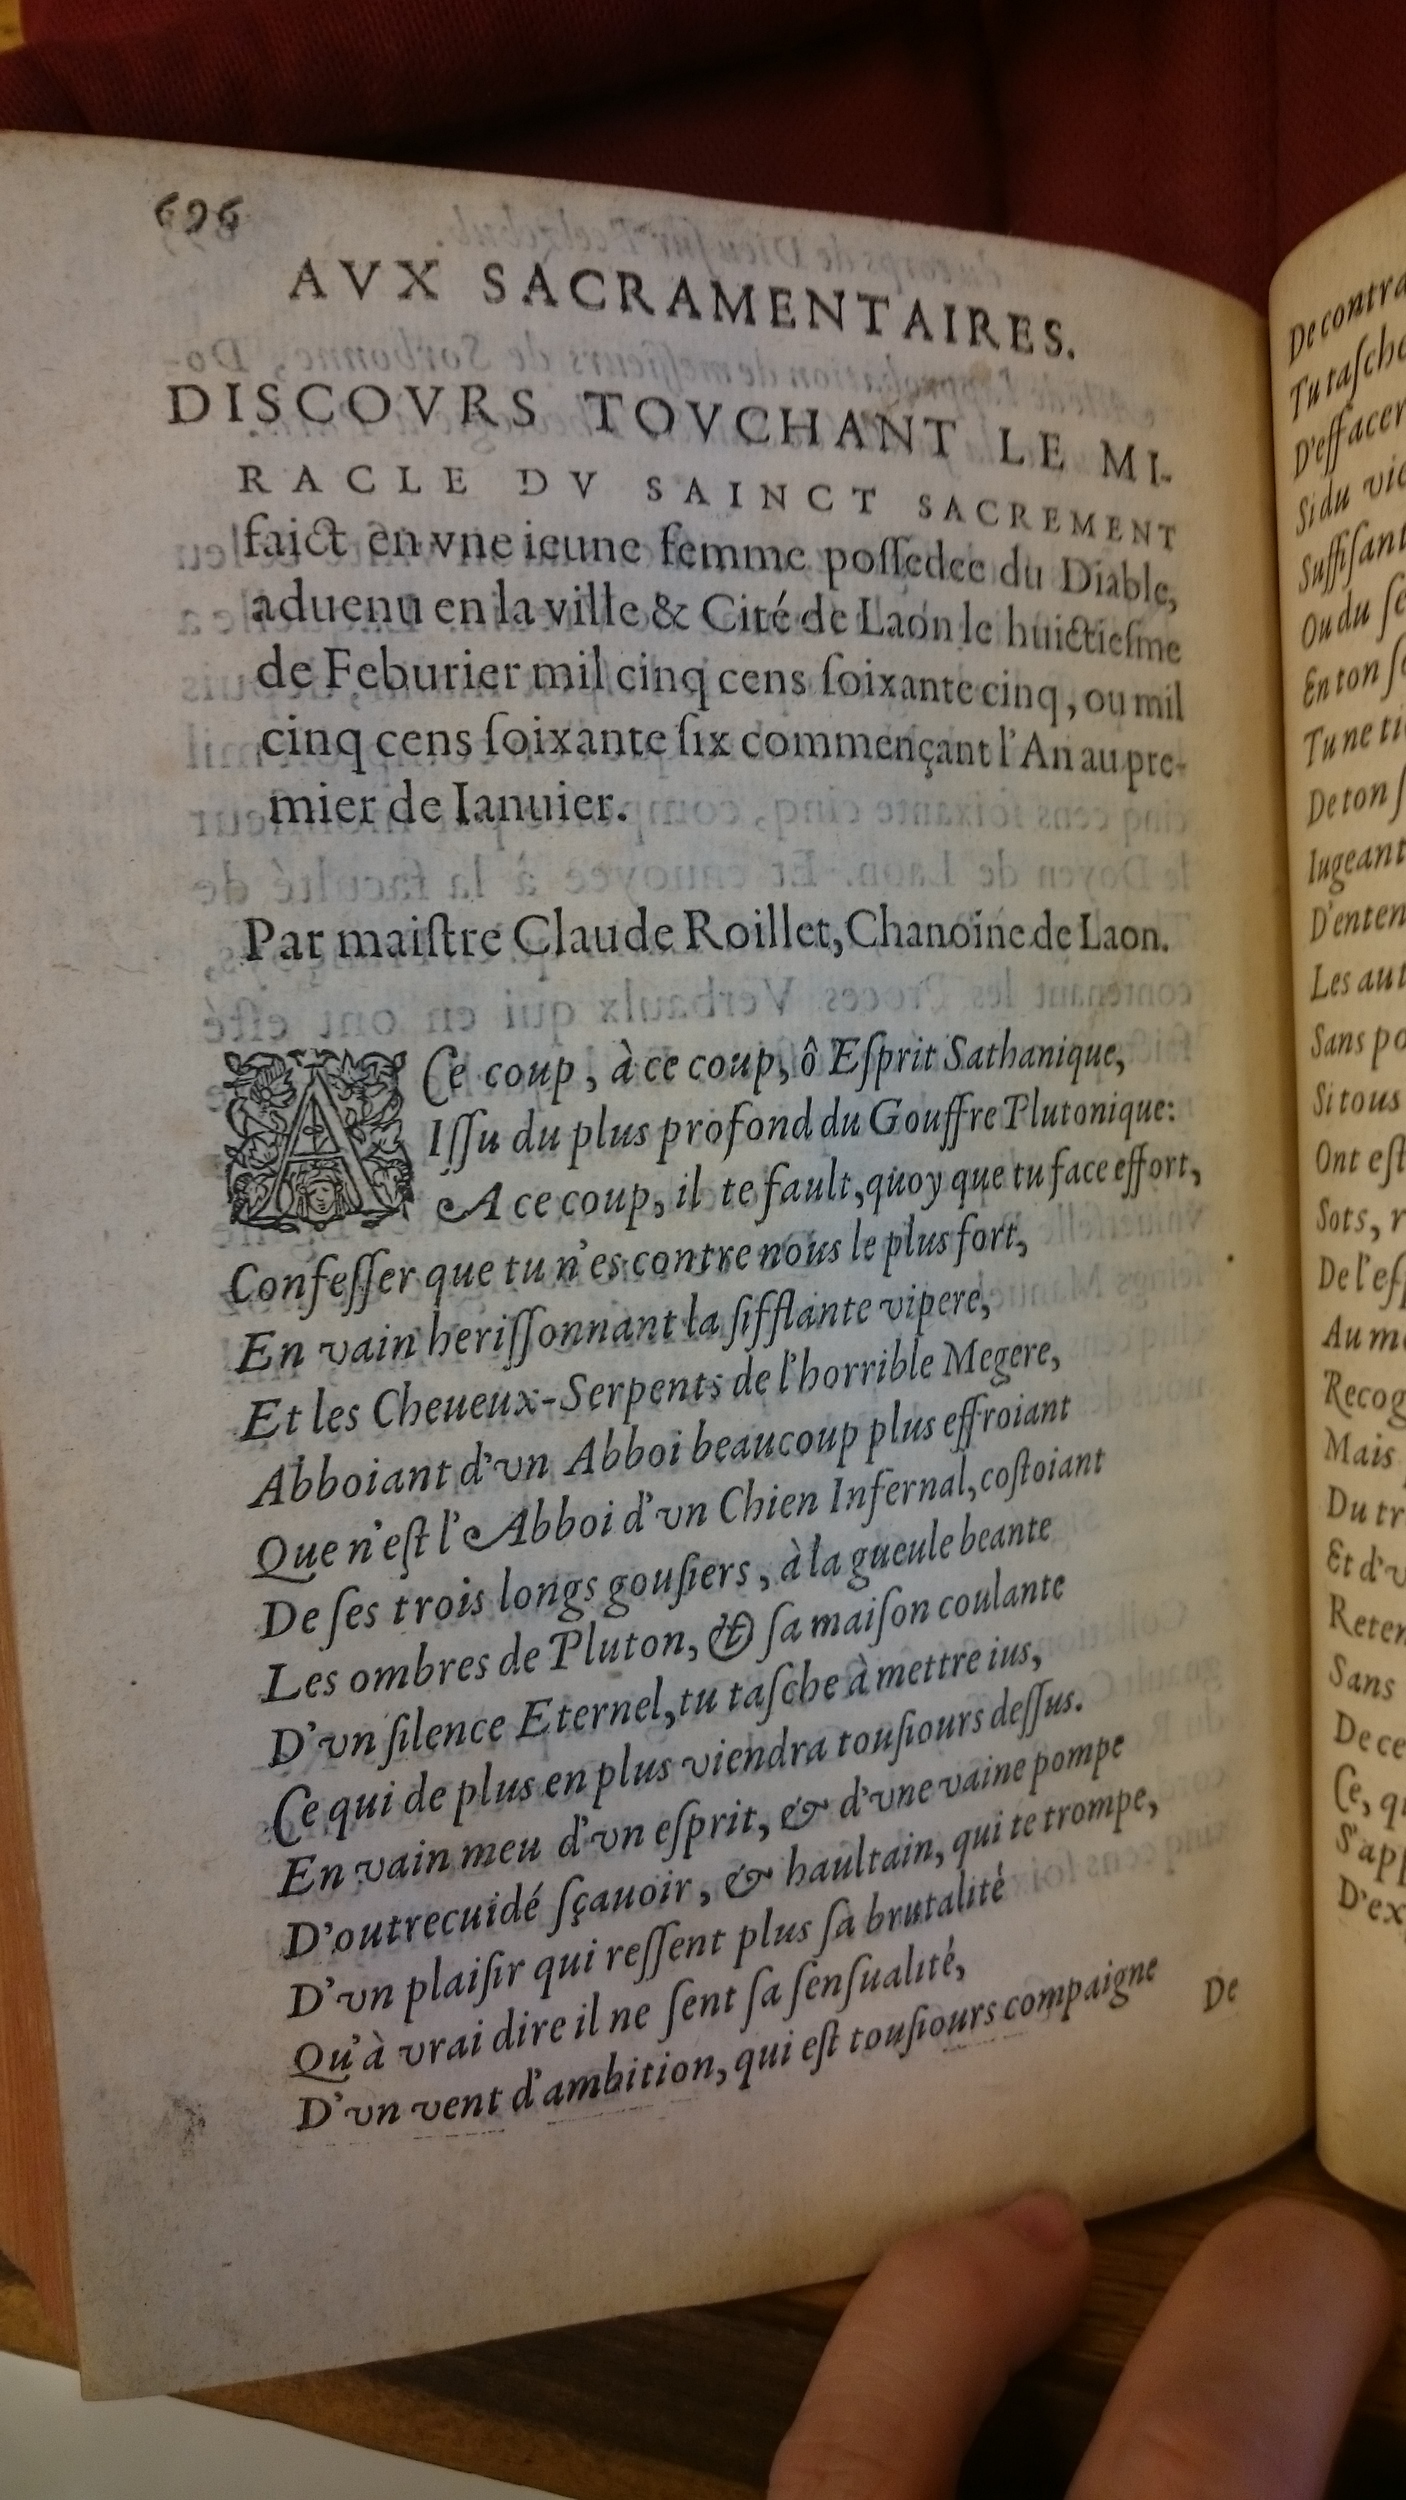 696
AVX SACRAMENTAIRES.
DISCOVRS TOVCHANT LE MI-
RACLE DV SAINCT SACREMENT
faict en vne ieune femme poſſedee du Diable,
aduenu en la ville & Cité de Laon le huictieſme
de Feburier mil cinq cens ſoixante cinq, ou mil
cinq cens ſoixante ſix commençant l'An au pre-
mier de Ianuier.
Par maiſtre Claude Roillet, Chanoine de Laon.
A Ce coup, à ce coup, ô Eſprit Sathanique,
Iſſu du plus profond du Gouffre Plutonique:
A ce coup, il te fault, quoy que tu face effort,
Confeſſer que tu n'es contre nous le plus fort,
En vain heriſſonnant la ſifflante vipere,
Et les Cheueux-Serpents de l'horrible Megere,
Abboiant d'vn Abboi beaucoup plus effroiant
Que n'eſt l'Abboi d'vn Chien Infernal, coſtoiant
De ſes trois longs gouſiers, à la gueule beante
Les ombres de Pluton, & ſa maiſon coulante
D'vn ſilence Eternel, tu taſche à mettre ius,
Ce qui de plus en plus viendra touſiours deſſus.
En vain meu d'vn eſprit, & d'vne vaine pompe
D'outrecuidé ſçauoir, & haultain, qui te trompe,
D'vn plaiſir qui reſſent plus ſa brutalité
Qu'à vrai dire il ne ſent ſa ſenſualité,
D'vn vent d'ambition, qui eſt touſiours compaigne
De
De contra
Tu taſche
D'effacer
Si du vic
Suffiſant
Ou du ſe
En ton ſ
Tu ne ti
De ton ſ
Iugeant
D'enten
Les aut
Sans po
Si tous
Ont eſt
Sots, r
De l'eſ
Au m
Recog
Mais
Du tr
Et d'v
Reten
Sans
De ce
Ce, qu
S'app
D'ex